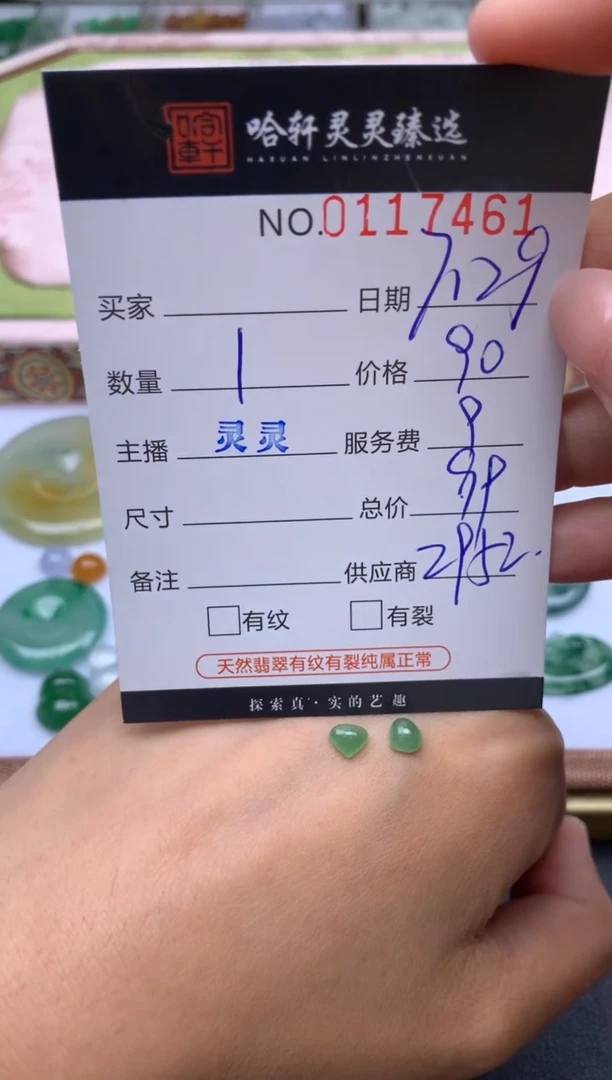 哈轩灵灵臻选
HAXUAN LINLINZHENXUAN
NO.0117461
买家 日期 7.29
数量 1 价格 90
主播 灵灵 服务费 9
尺寸 总价 99
备注 供应商 2952.
有纹 有裂
天然翡翠有纹有裂纯属正常
探索真·实的艺趣